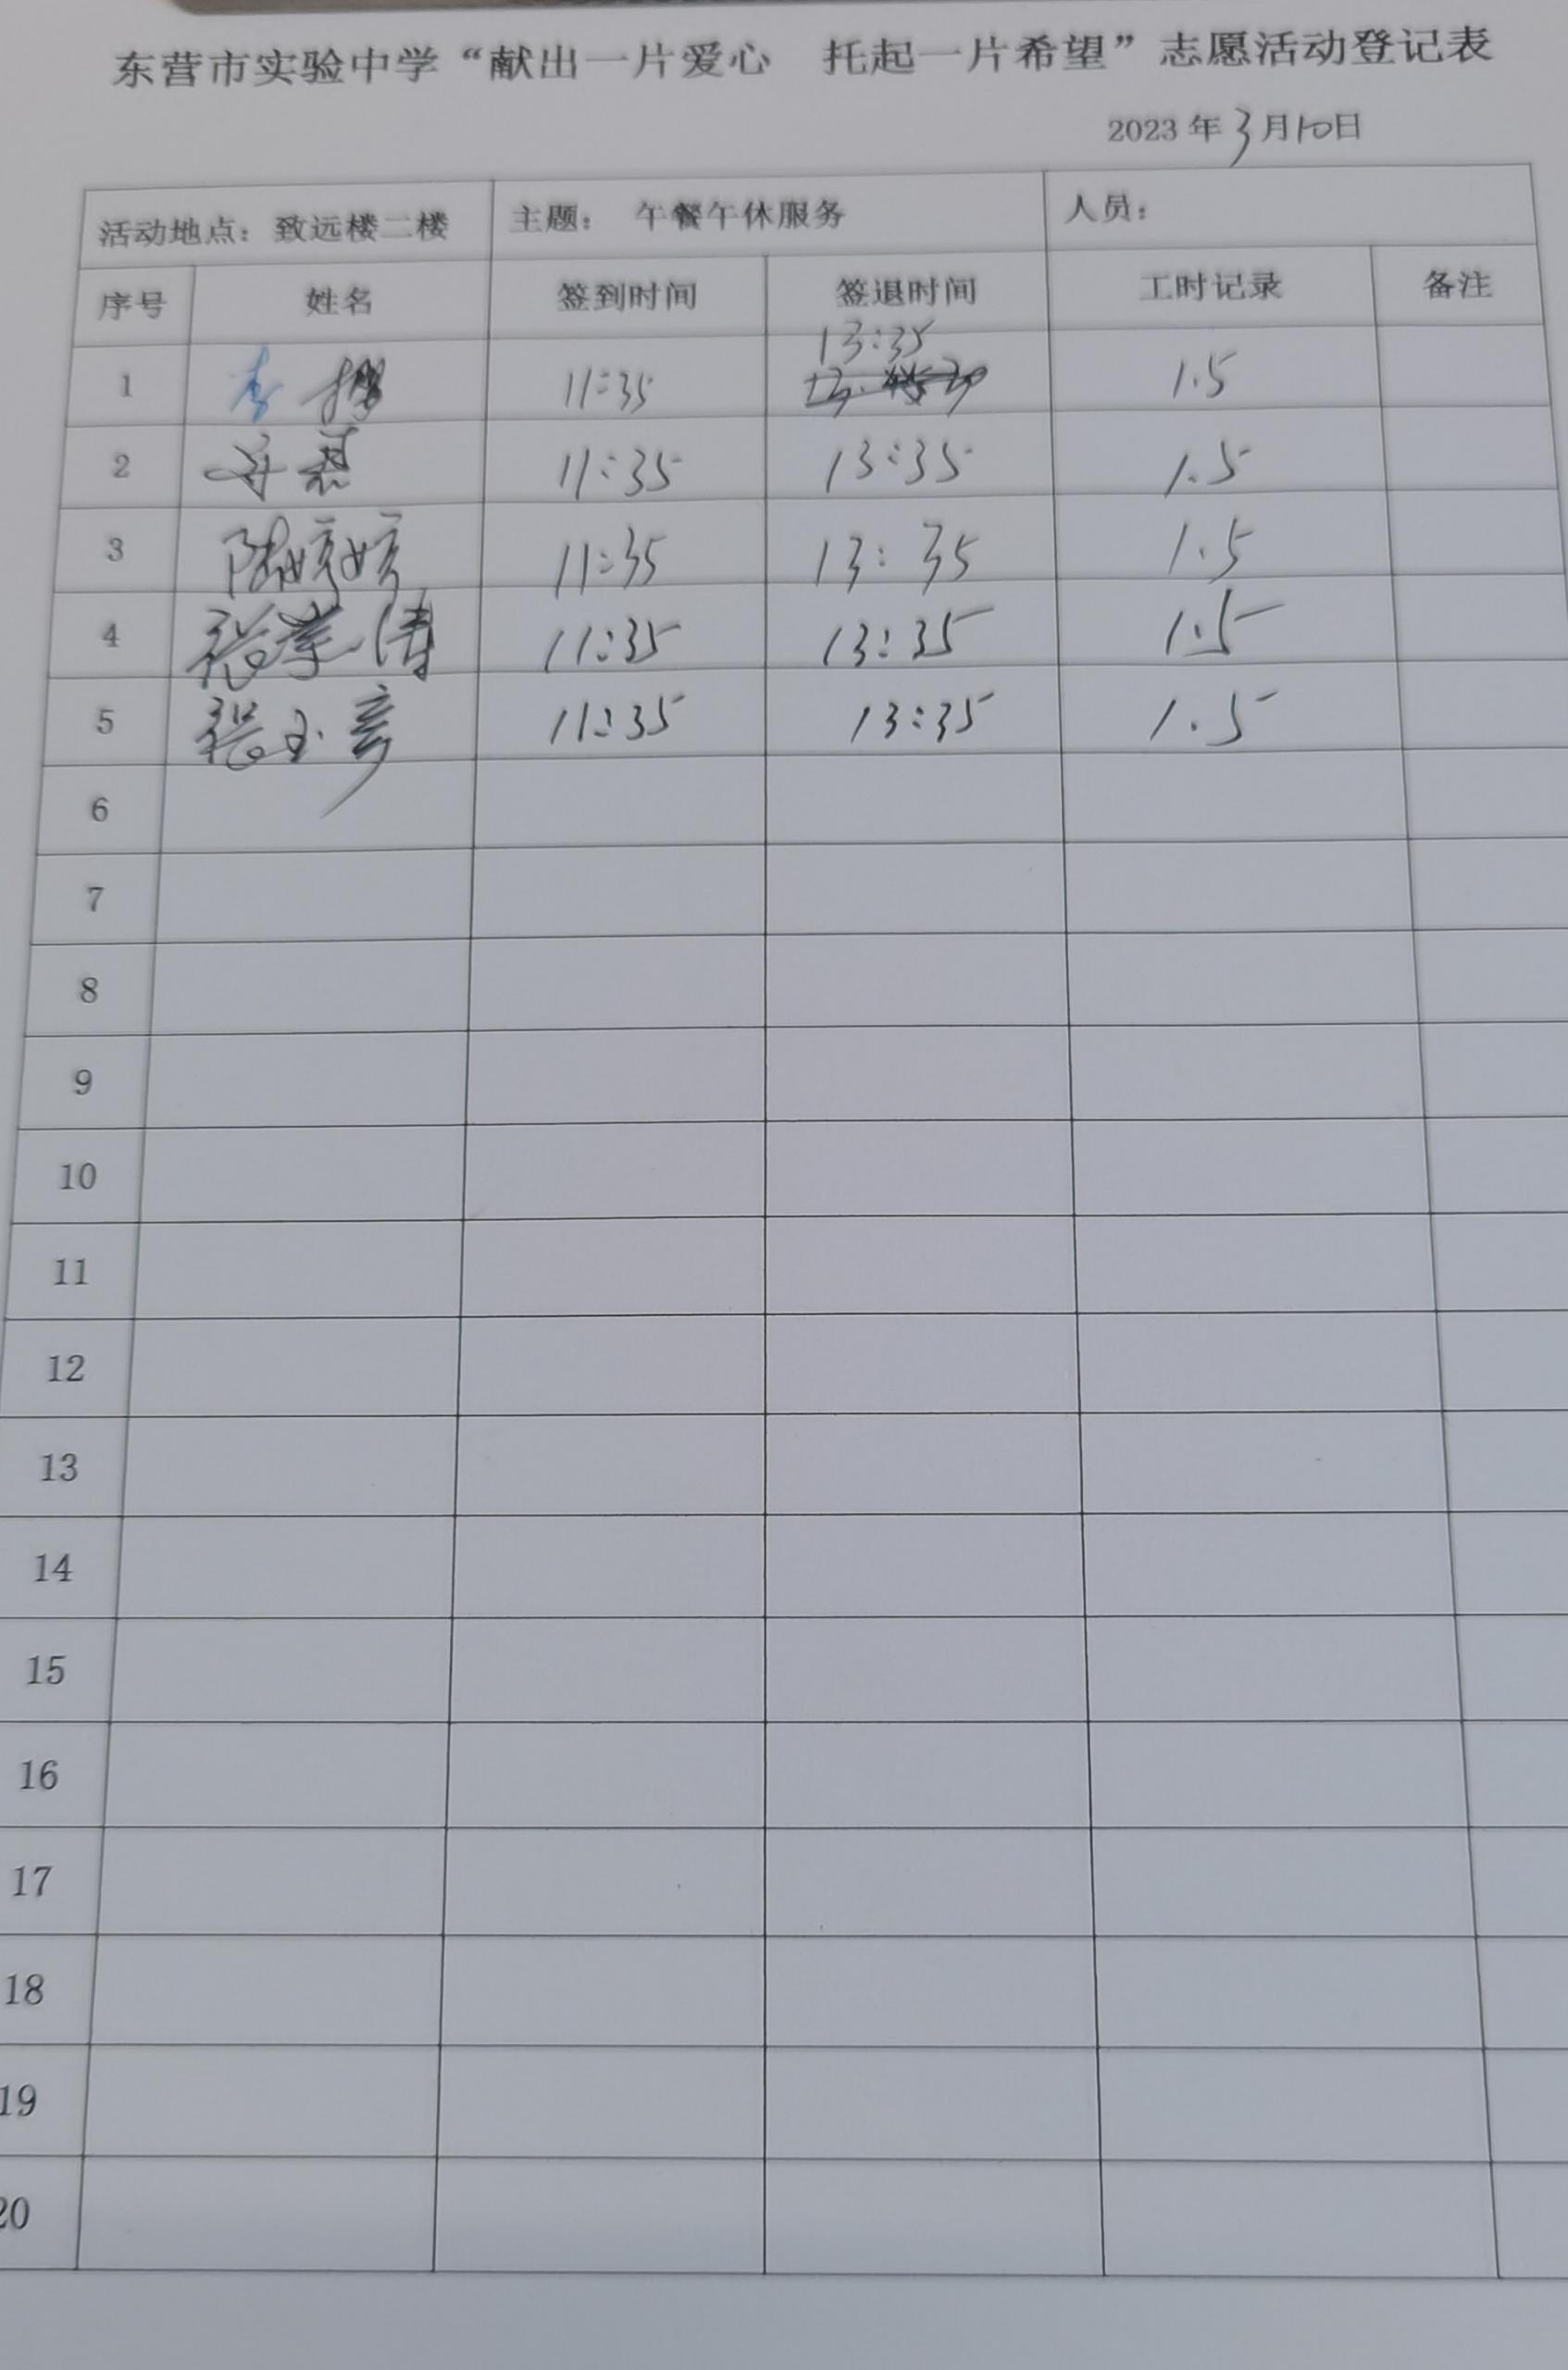 东营市实验中学“献出一片爱心 托起一片希望”志愿活动登记表
2023年3月10日
活动地点：致远楼二楼 主题： 午餐午休服务 人员：
序号 姓名 签到时间 签退时间 工时记录 备注
13:35
1 李 11:35 1.5
2 11:35 13:35 1.5
3 陈婷婷 11:35 13:35 1.5
4 张 涛 11:35 13:35 1.5
5 张玉彦 11:35 13:35 1.5
6
7
8
9
10
11
12
13
14
15
16
17
18
19
20